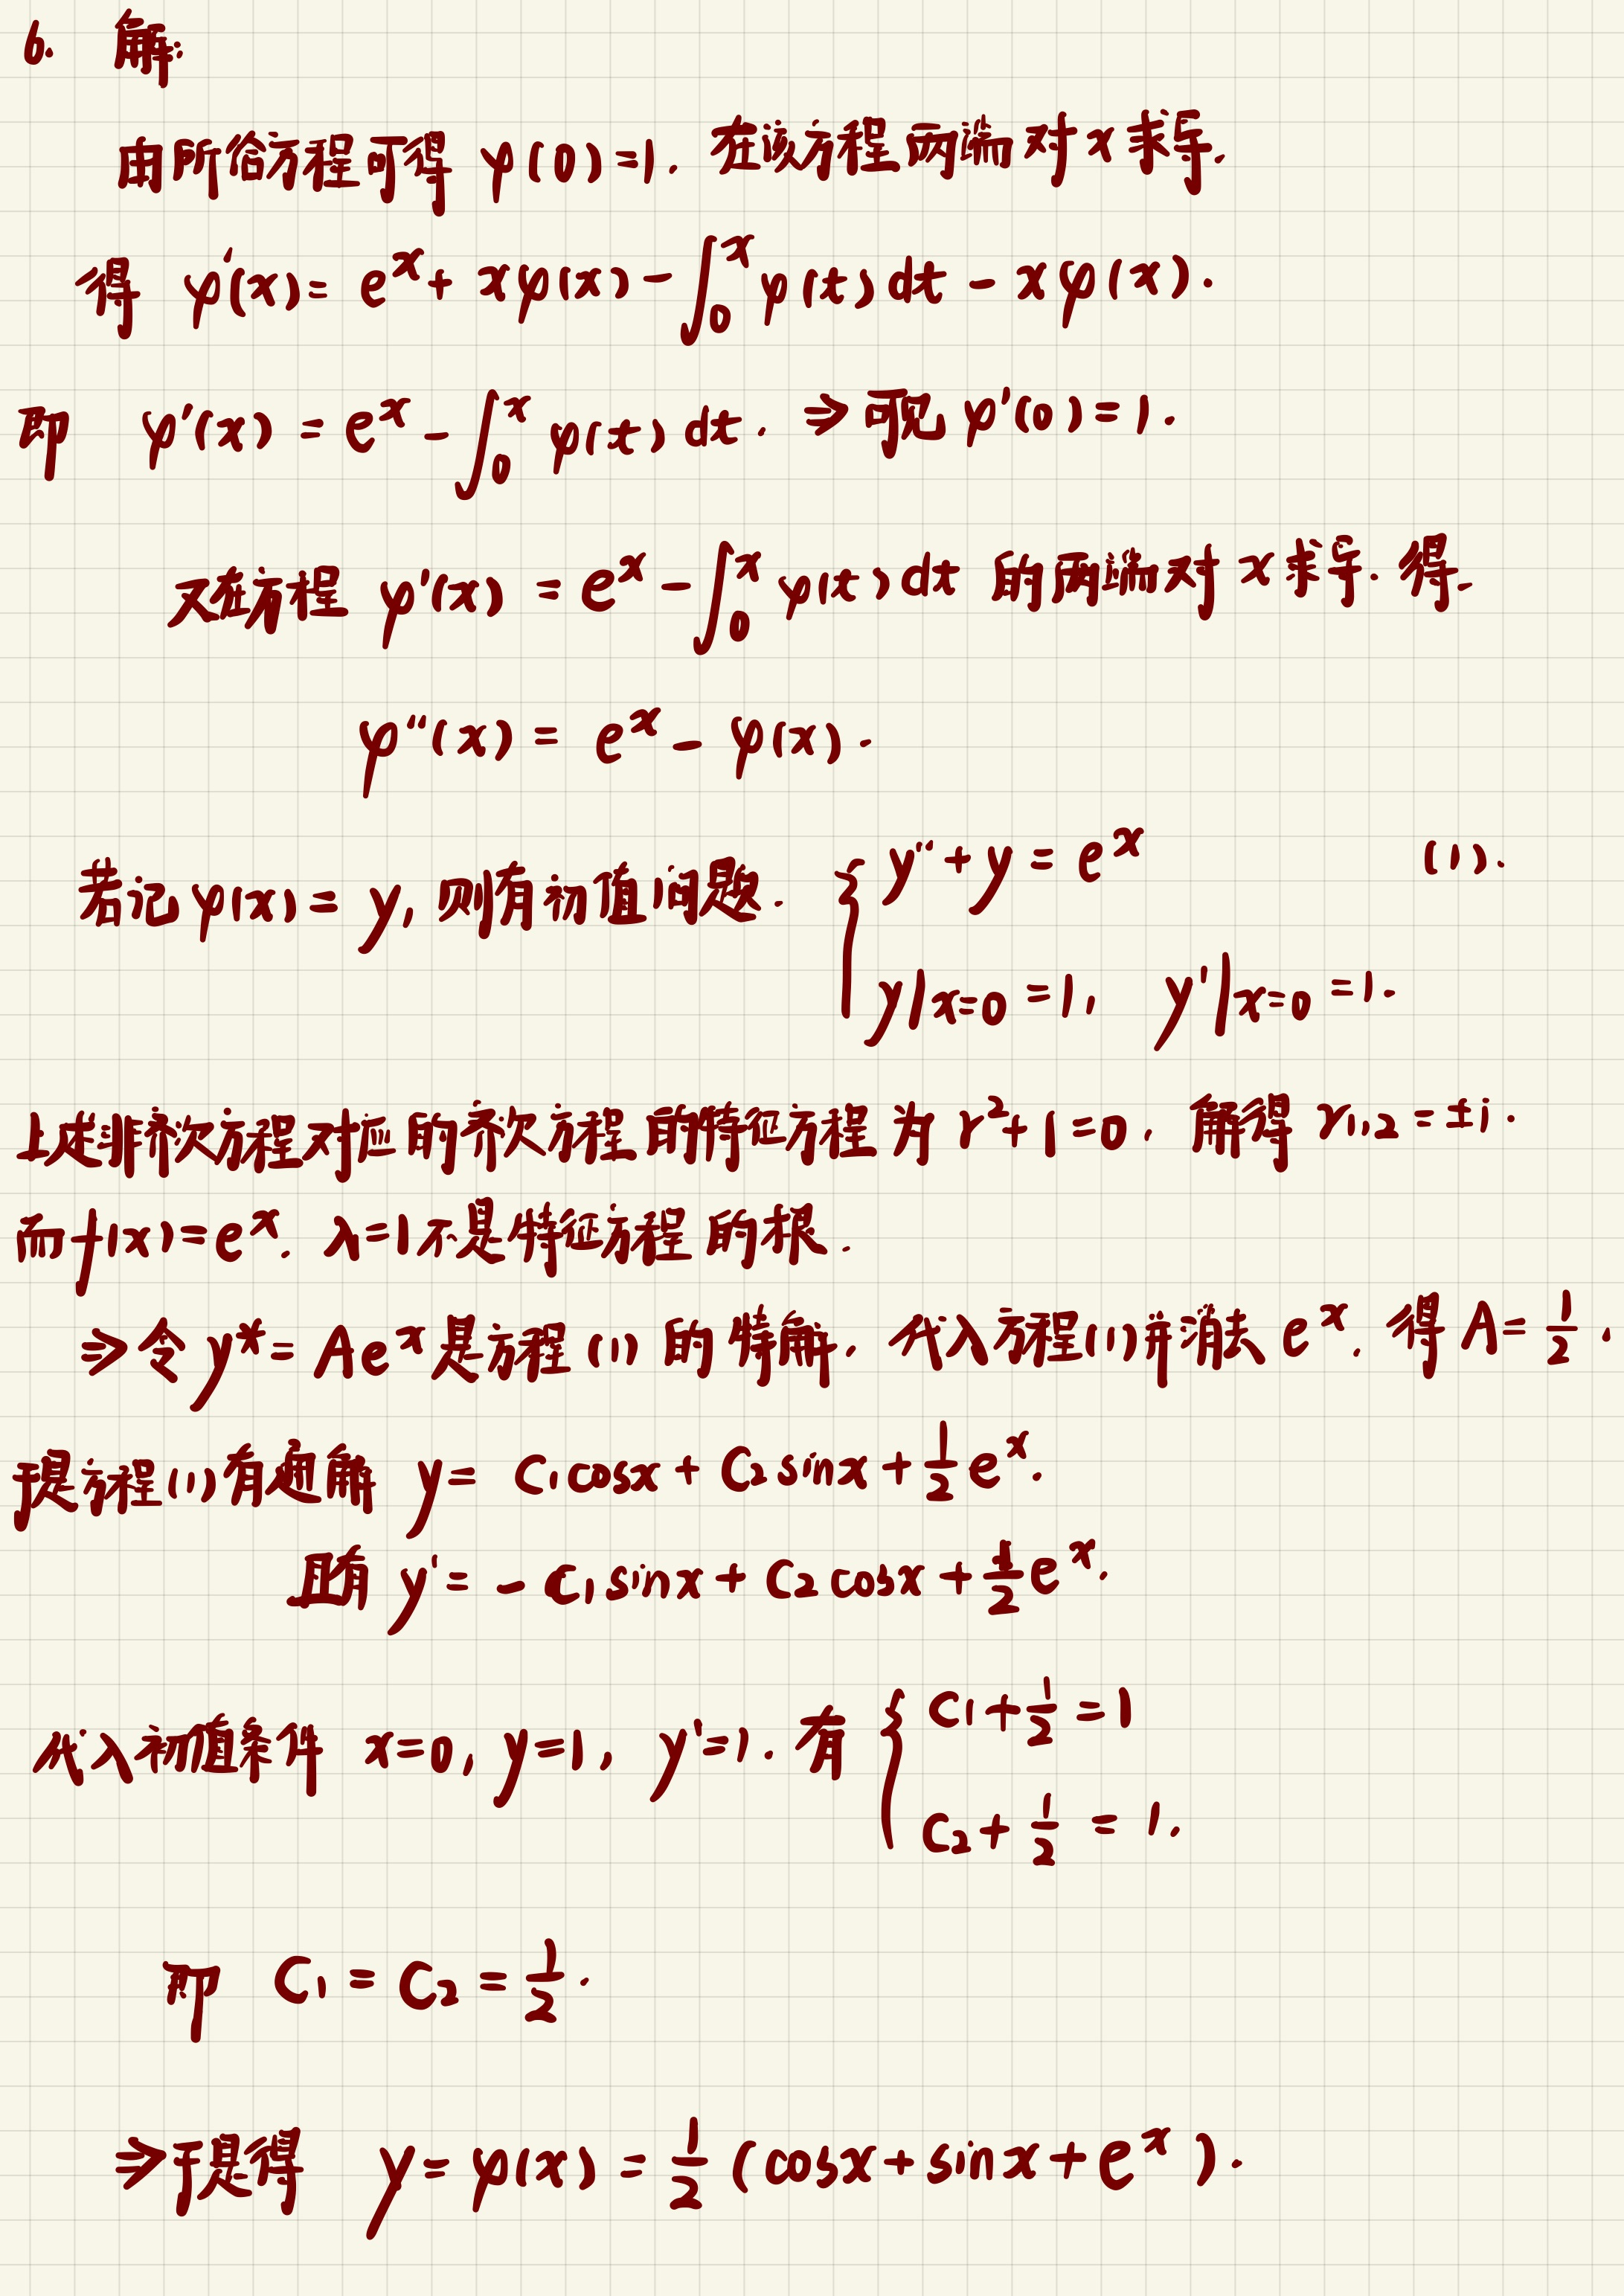 6. 解:
由所给方程可得 φ(0)=1. 在该方程两端对x求导.
得 φ'(x)= e^x + xφ(x) - ∫_0^x φ(t)dt - xφ(x).
即 φ'(x) = e^x - ∫_0^x φ(t)dt. ⇒可见 φ'(0)=1.
又在方程 φ'(x) = e^x - ∫_0^x φ(t)dt 的两端对x求导. 得.
φ''(x) = e^x - φ(x).
若记φ(x)= y, 则有初值问题. { y''+y = e^x (1).
y|x=0 =1, y'|x=0 =1.
上述非齐次方程对应的齐次方程的特征方程为 r²+1=0. 解得 r₁,₂ = ±i.
而f(x)=e^x. λ=1不是特征方程的根.
⇒令y*= Ae^x是方程(1)的特解. 代入方程(1)并消去e^x. 得A= 1/2.
于是方程(1)有通解 y= C₁cosx + C₂sinx + 1/2 e^x.
且有 y'= - C₁sinx + C₂cosx + 1/2 e^x.
代入初值条件 x=0, y=1, y'=1. 有 { C₁+1/2 =1
C₂+ 1/2 = 1.
即 C₁ = C₂ = 1/2.
⇒于是得 y= φ(x) = 1/2 (cosx+sinx+e^x).